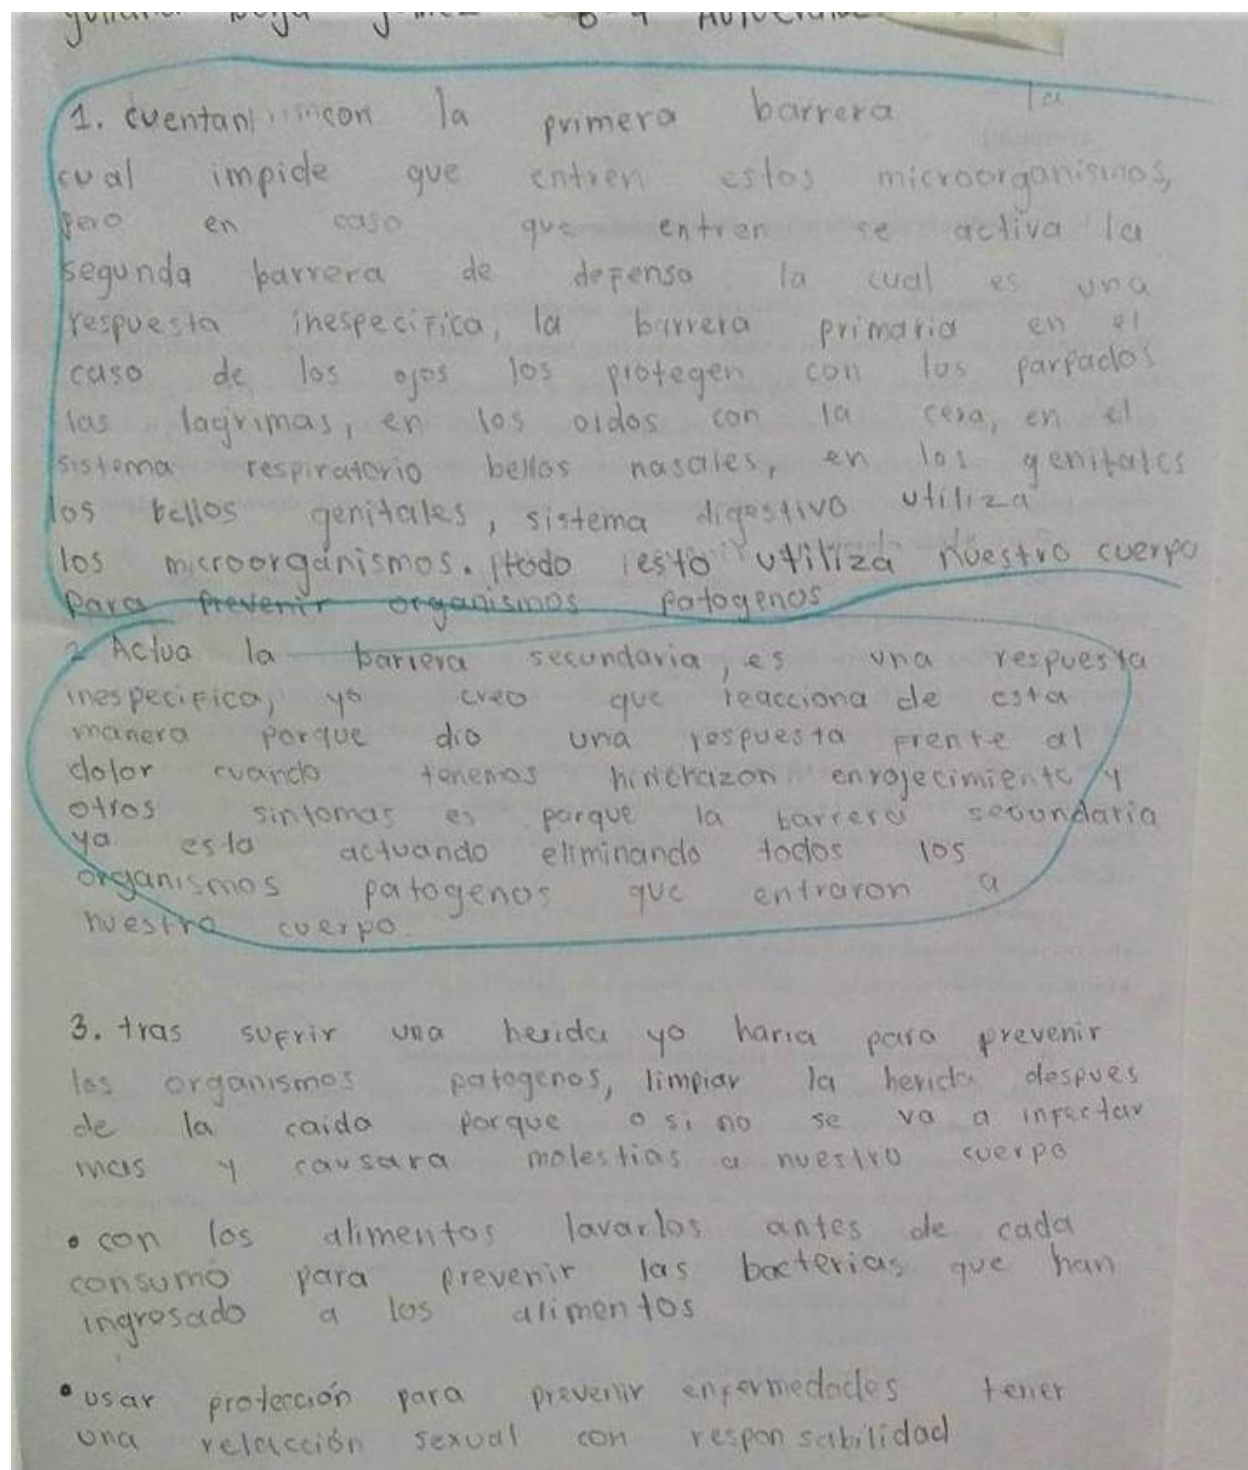 1. cuentan con la primera barrera la
cual impide que entren estos microorganismos,
pero en caso que entren se activa la
segunda barrera de defensa la cual es una
respuesta inespecifica, la barrera primaria en el
caso de los ojos los protegen con los parpados
las lagrimas, en los oidos con la cera, en el
sistema respiratorio bellos nasales, en los genitales
los bellos genitales, sistema digestivo utiliza
los microorganismos. todo esto utiliza nuestro cuerpo
para prevenir organismos patogenos
2 Actua la barrera secundaria, es una respuesta
inespecifica, yo creo que reacciona de esta
manera porque dio una respuesta frente al
dolor cuando tenemos hinchazon enrojecimiento y
otros sintomas es porque la barrera secundaria
ya esta actuando eliminando todos los
organismos patogenos que entraron a
nuestro cuerpo.
3. tras sufrir una herida yo haria para prevenir
los organismos patogenos, limpiar la herida despues
de la caida porque o si no se va a infectar
mas y causara molestias a nuestro cuerpo
• con los alimentos lavarlos antes de cada
consumo para prevenir las bacterias que han
ingresado a los alimentos
• usar protección para prevenir enfermedades tener
una relacción sexual con responsabilidad